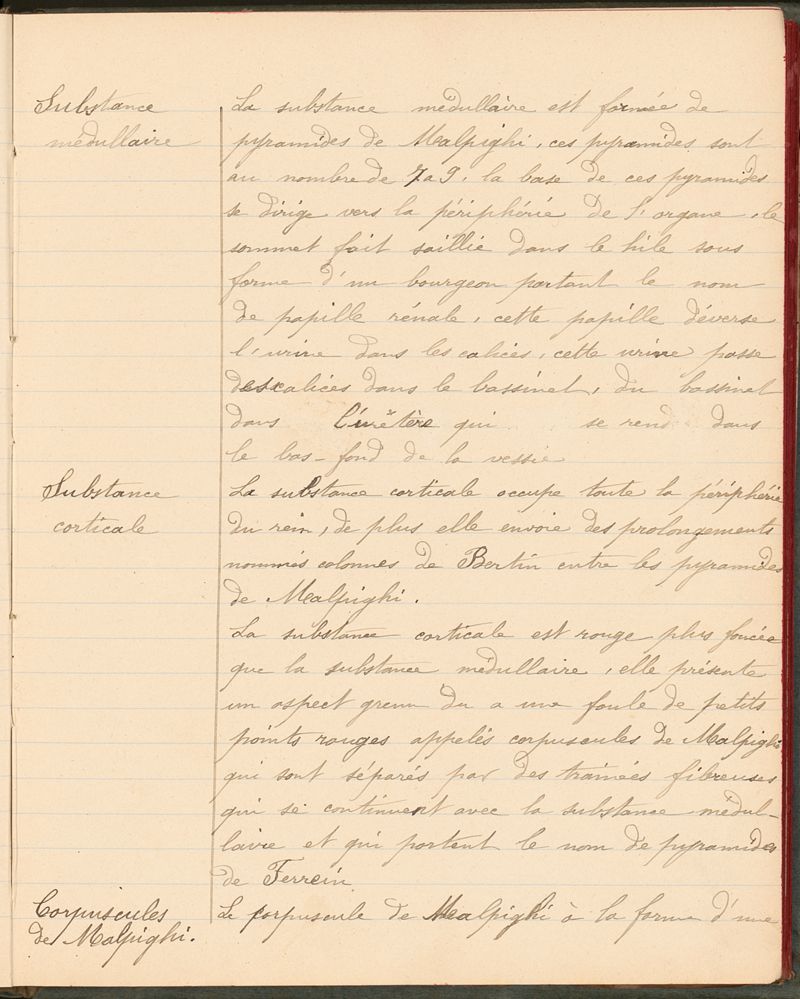 Substance
médullaire
La substance médullaire est formée de
pyramides de Malpighi, ces pyramides sont
au nombre de 7 a 9, la base de ces pyramides
se dirige vers la périphérie de l'organe, le
sommet fait saillie dans le hile sous
forme d'un bourgeon portant le nom
de papille rénale, cette papille déverse
l'urine dans les calices, cette urine passe
des calices dans le bassinet, du bassinet
dans l'urêtère qui se rend dans
le bas-fond de la vessie
Substance
corticale
La substance corticale occupe toute la périphérie
du rein, de plus elle envoie des prolongements
nommés colonnes de Bertin entre les pyramides
de Malpighi.
La substance corticale est rouge plus foncée
que la substance médullaire, elle présente
un aspect grenu du a une foule de petits
points rouges appelés corpuscules de Malpighi
qui sont séparés par des trainées fibreuses
qui se continuent avec la substance médul-
laire et qui portent le nom de pyramides
de Ferrein
Corpuscules
de Malpighi.
Le corpuscule de Malpighi à la forme d'une